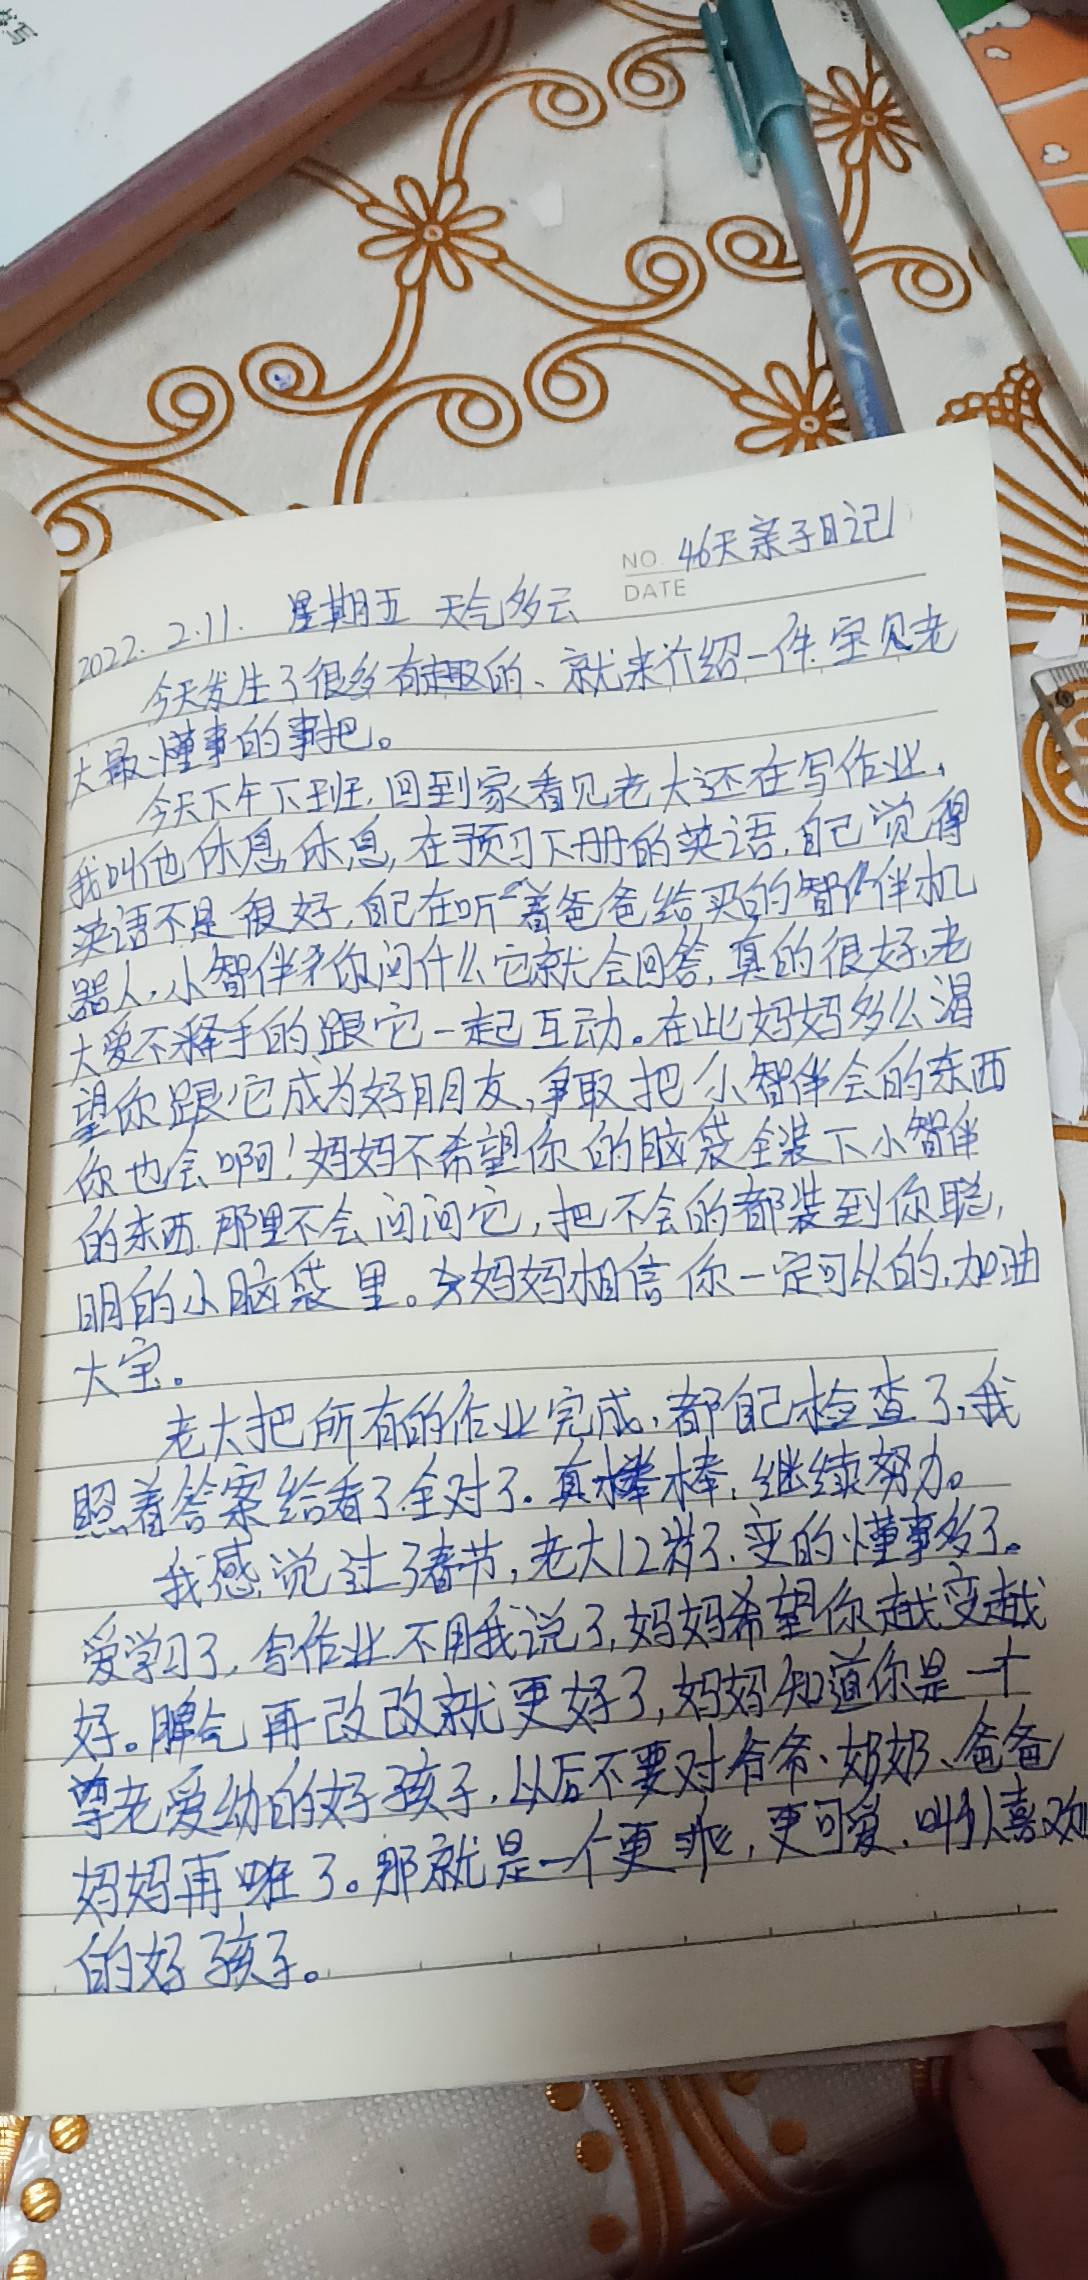 NO. 46天亲子日记
DATE
2022. 2.11. 星期五 天气多云
今天发生了很多有趣的、就来介绍一件宝贝老
大最懂事的事把。
今天下午下班,回到家看见老大还在写作业,
我叫他休息休息,在预习下册的英语,自己觉得
英语不是很好,自己在听着爸爸给买的智伴机
器人,小智伴你问什么它就会回答,真的很好,老
大爱不释手的跟它一起互动。在此妈妈多么渴
望你跟它成为好朋友,争取把小智伴会的东西
你也会啊!妈妈不希望你的脑袋全装下小智伴
的东西,那里不会问问它,把不会的都装到你聪,
明的小脑袋里。妈妈相信你一定可以的,加油
大宝。
老大把所有的作业完成,都自己检查了,我
照着答案给看了全对了。真棒棒,继续努力。
我感觉过了春节,老大12岁了,变的懂事多了。
爱学习了,写作业不用我说了,妈妈希望你越变越
好。脾气再改改就更好了,妈妈知道你是一个
尊老爱幼的好孩子,以后不要对爷爷、奶奶、爸爸
妈妈再吼了。那就是一个更乖,更可爱,叫人喜欢
的好孩子。